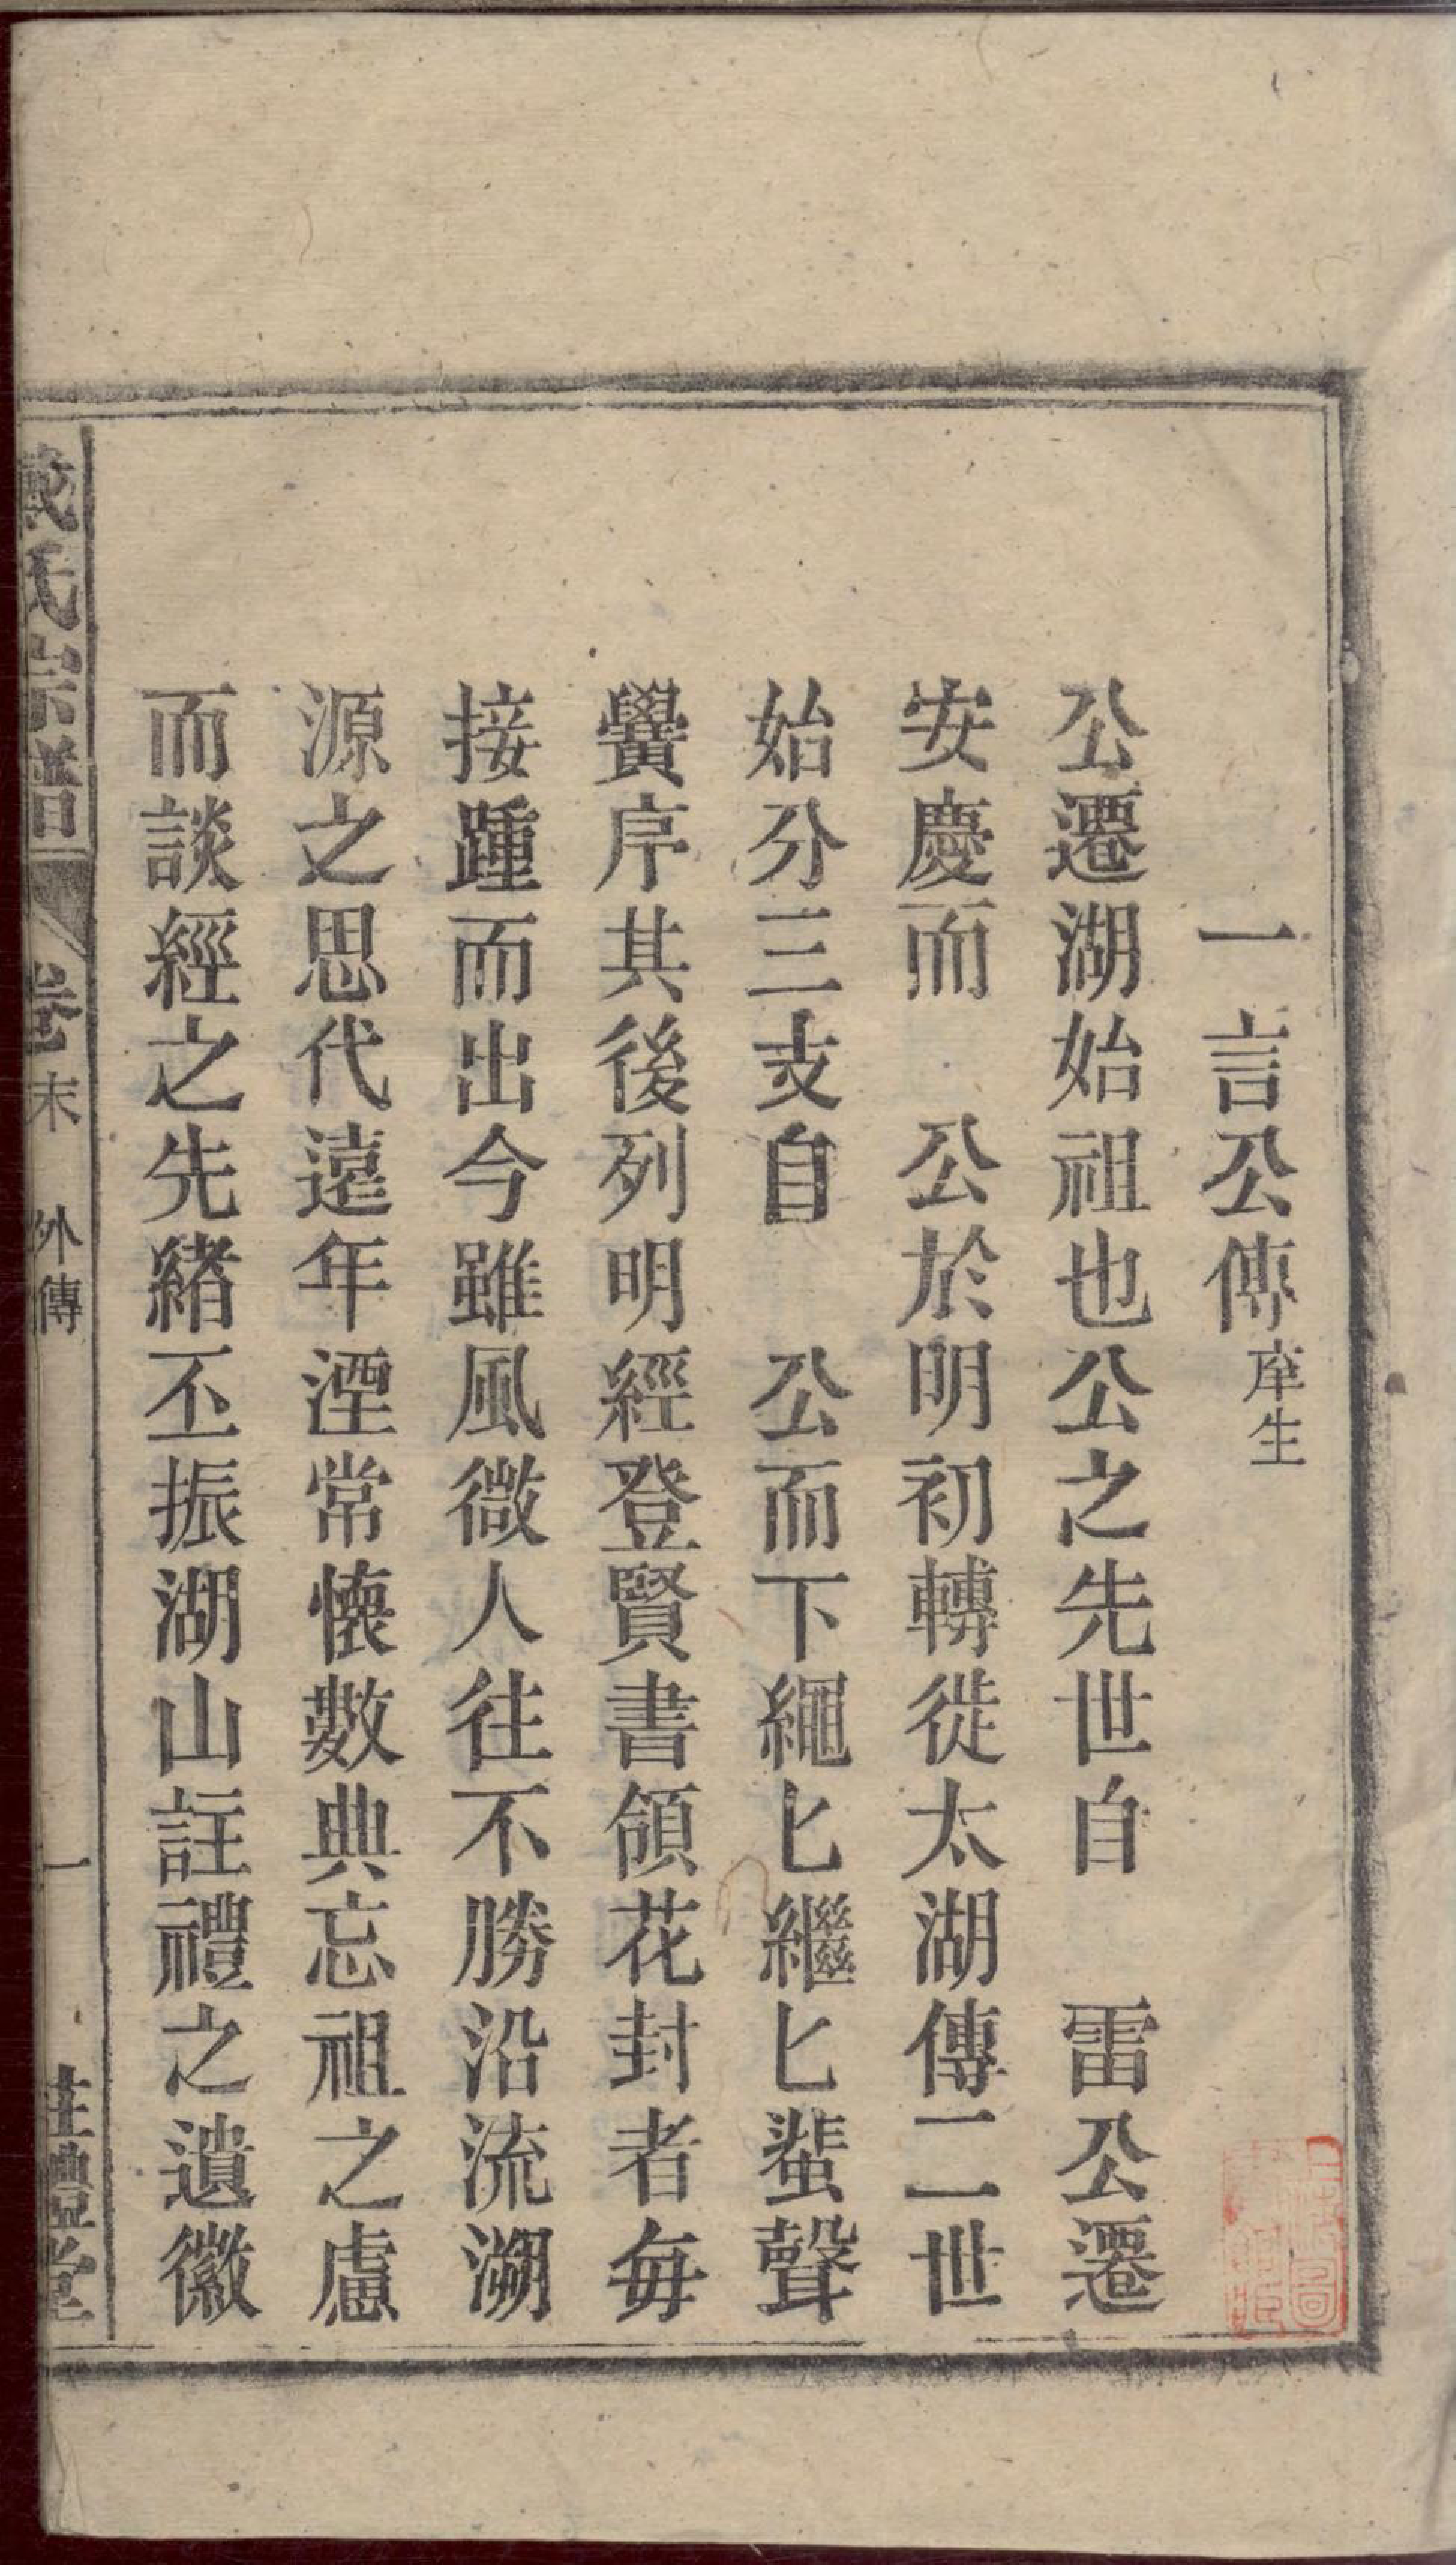 一言公傳 庠生
公遷湖始祖也公之先世自 雷公遷
安慶而 公於明初轉徙太湖傳二世
始分三支自 公而下繩匕繼匕蜚聲
黌序其後列明經登賢書領花封者每
接踵而出今雖風微人往不勝沿流溯
源之思代遠年湮常懷數典忘祖之慮
而談經之先緒丕振湖山註禮之遺徽
戴氏宗譜 卷末 外傳 一 註禮堂